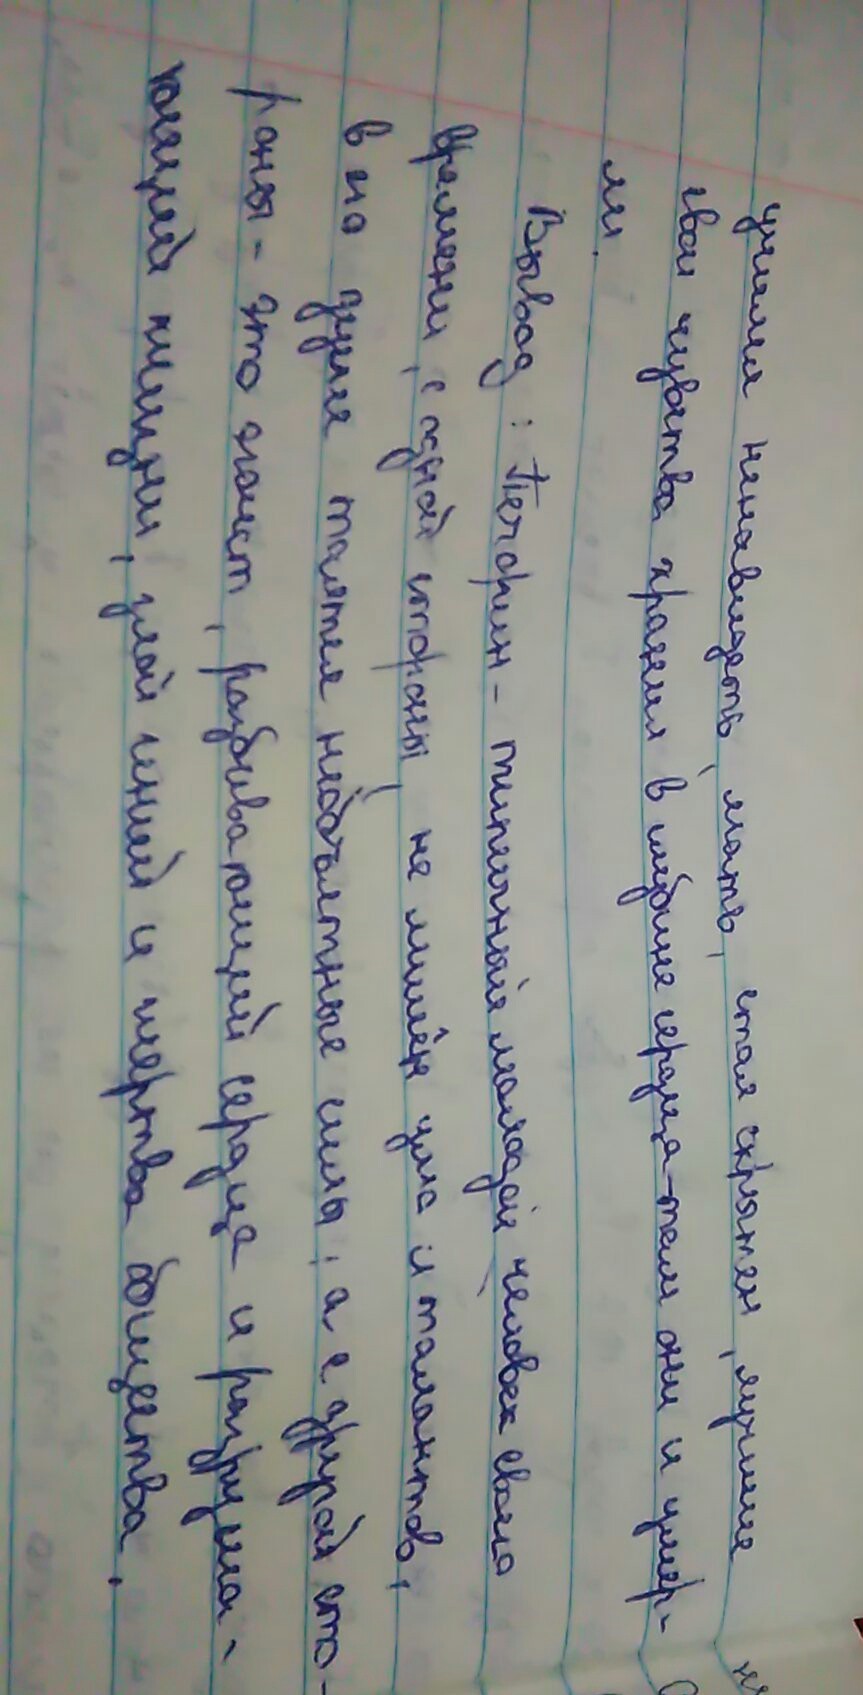 учился ненавидеть, лгать, стал скрытен, лучшие
свои чувства хранил в глубине сердца-там они и умер-
ли.
Вывод: Печорин - типичный молодой человек своего
времени, с одной стороны, не лишён ума и талантов,
в его душе таятся необъятные силы, а с другой сто-
роны - это эгоист, разбивающий сердца и разруша-
ющий жизни, злой гений и жертва общества,